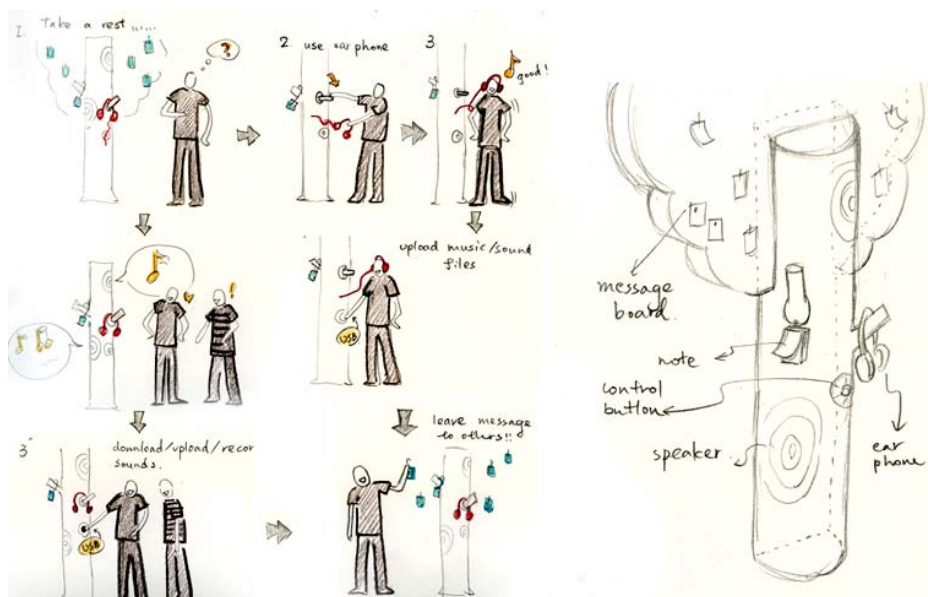 1. Take a rest .....
?
2. use ear phone
3
good!
upload music/sound
files
!
USB
3"
download/upload/recor
sounds.
USB
leave message
to others!!
message
board.
note
control
button
speaker
ear
phone